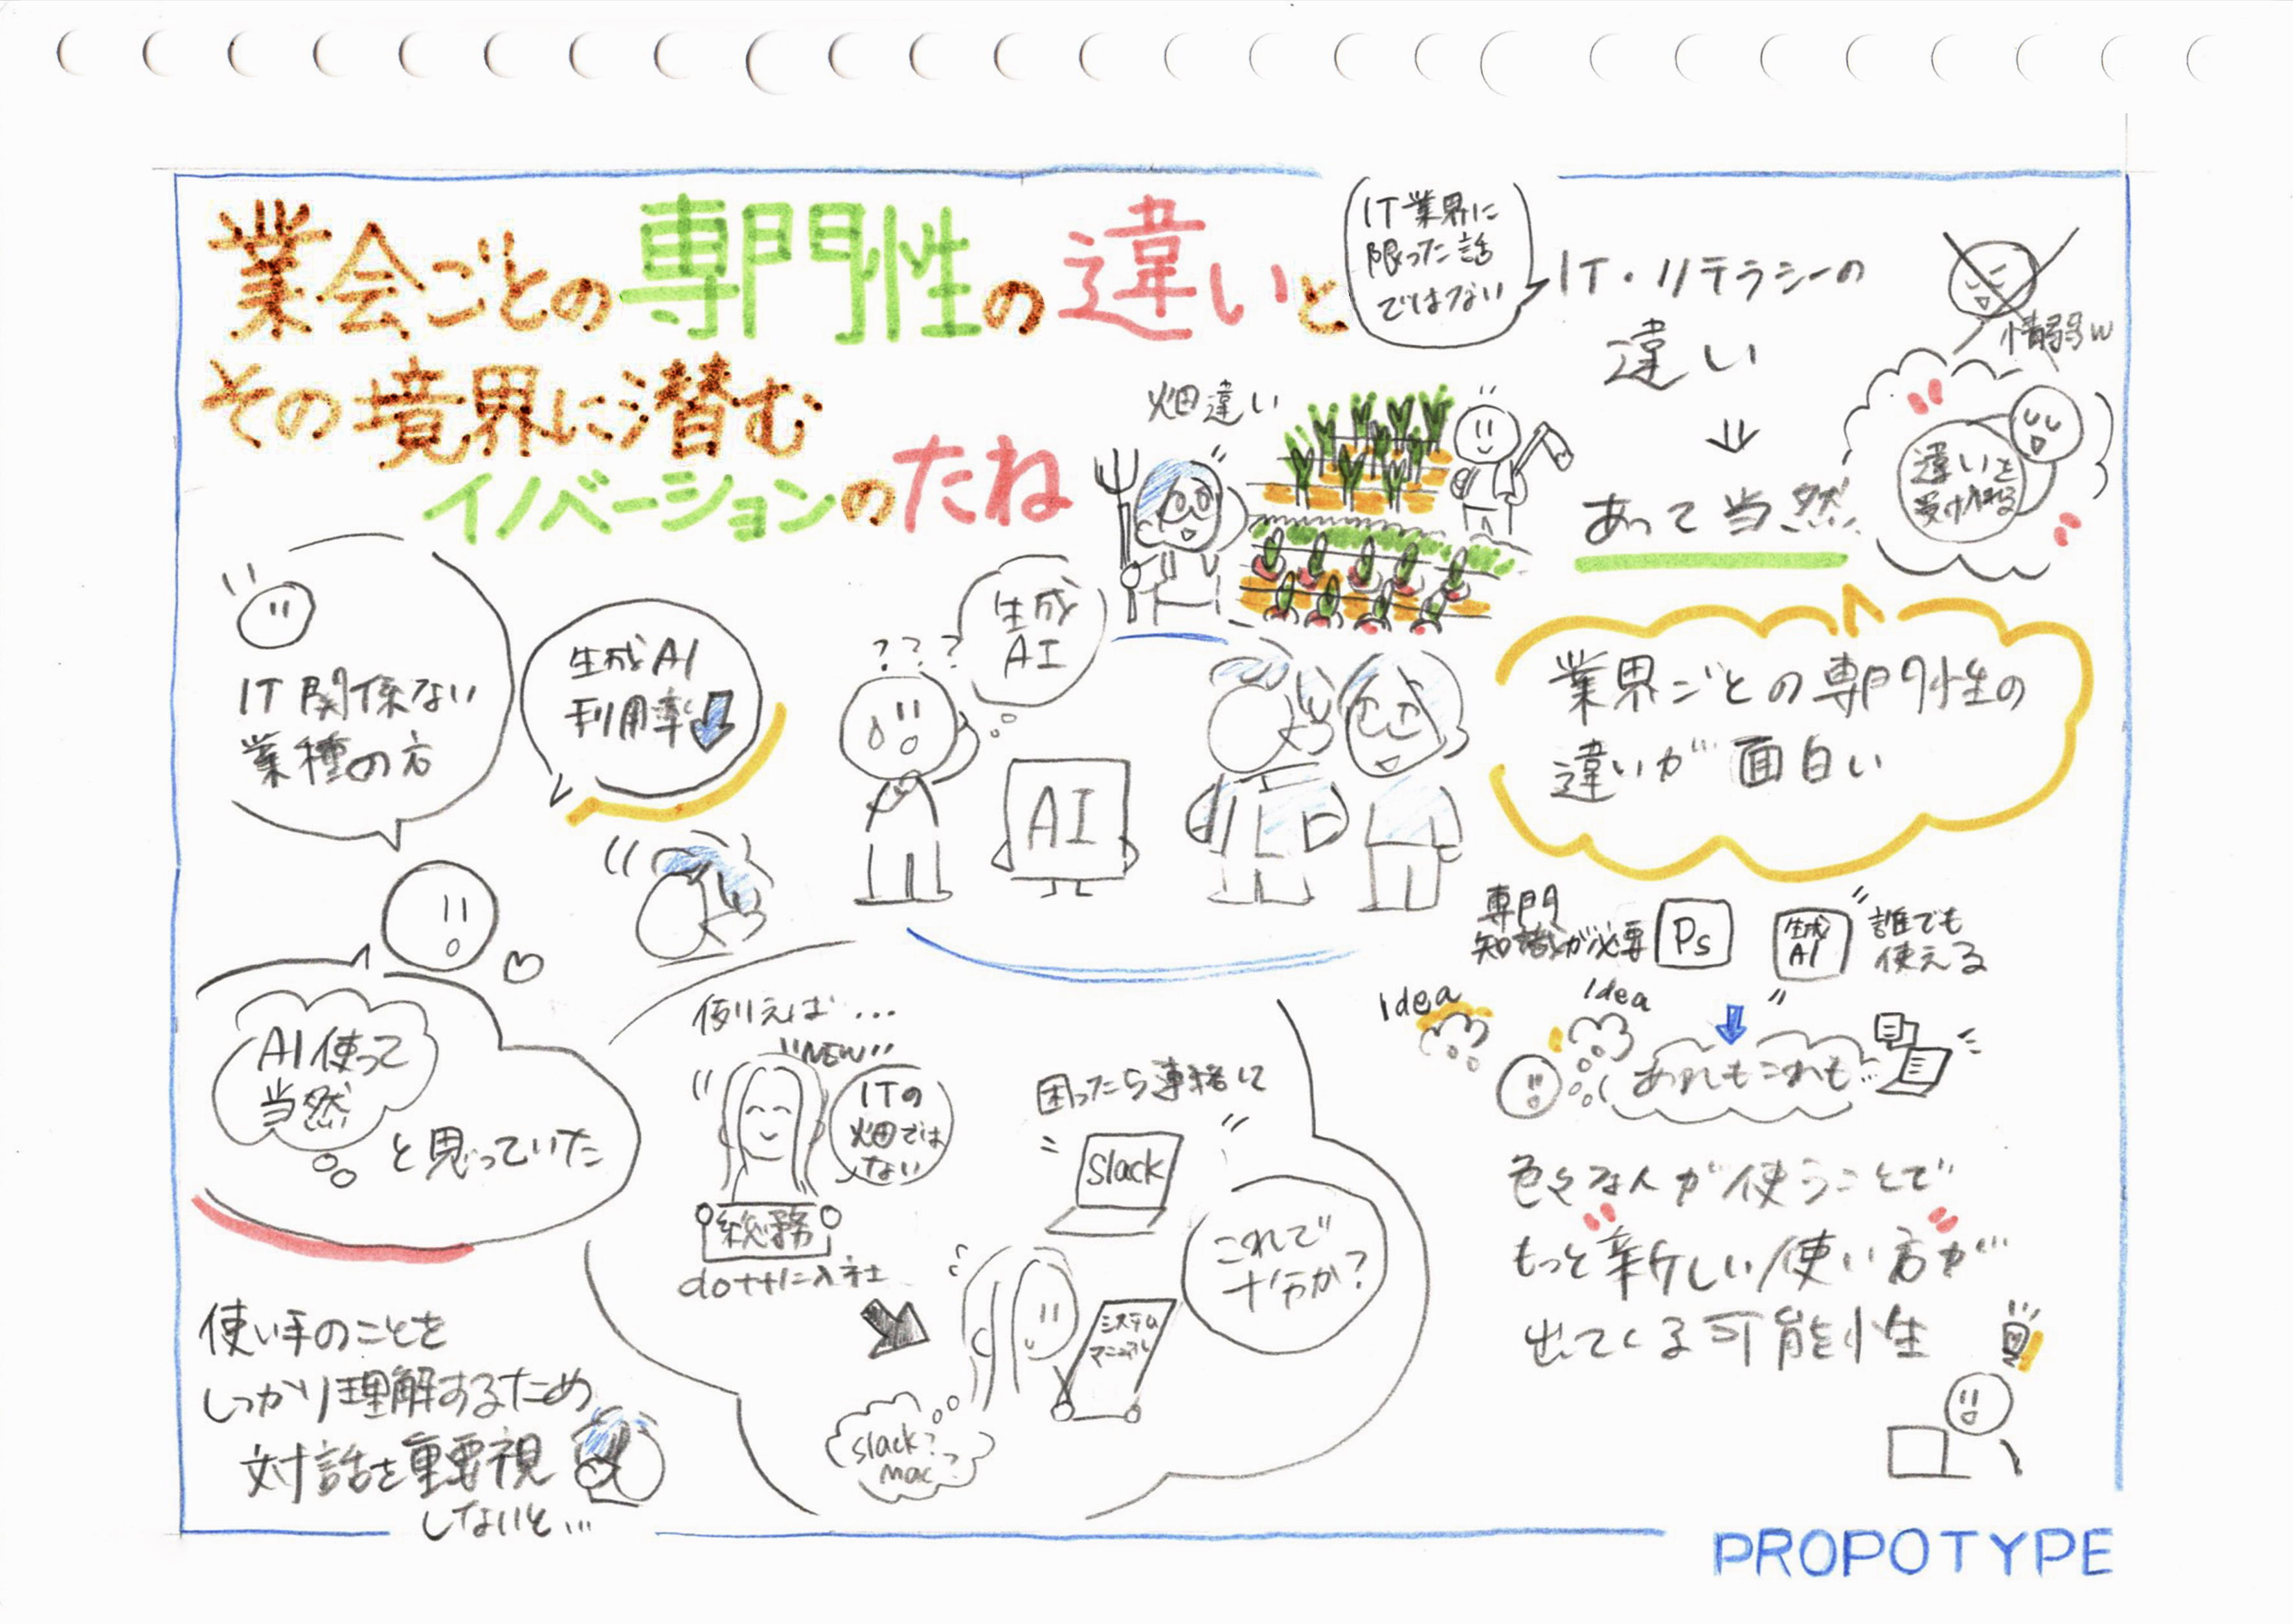 業会ごとの専門性の違いと
その境界に潜む
イノベーションのたね
IT業界に
限った話
ではない
IT・リテラシーの
違い
情弱w
あって当然
違いを
受け入れる
畑違い
業界ごとの専門性の
違いが面白い
IT関係ない
業種の方
生成AI
利用率
???
生成
AI
AI
AI使って
当然
と思っていた
使い手のことを
しっかり理解するため
対話を重要視
しないと...
例えば...
"NEW"
ITの
畑では
ない
総務
dottに入社
困ったら連絡して
Slack
これで
十分か?
システム
マニュアル
slack?
mac?
専門
知識が必要
Ps
生成
AI
誰でも
使える
Idea
Idea
あれもこれも...
色々な人が使うことで
もっと新しい使い方が
出てくる可能性
PROPOTYPE